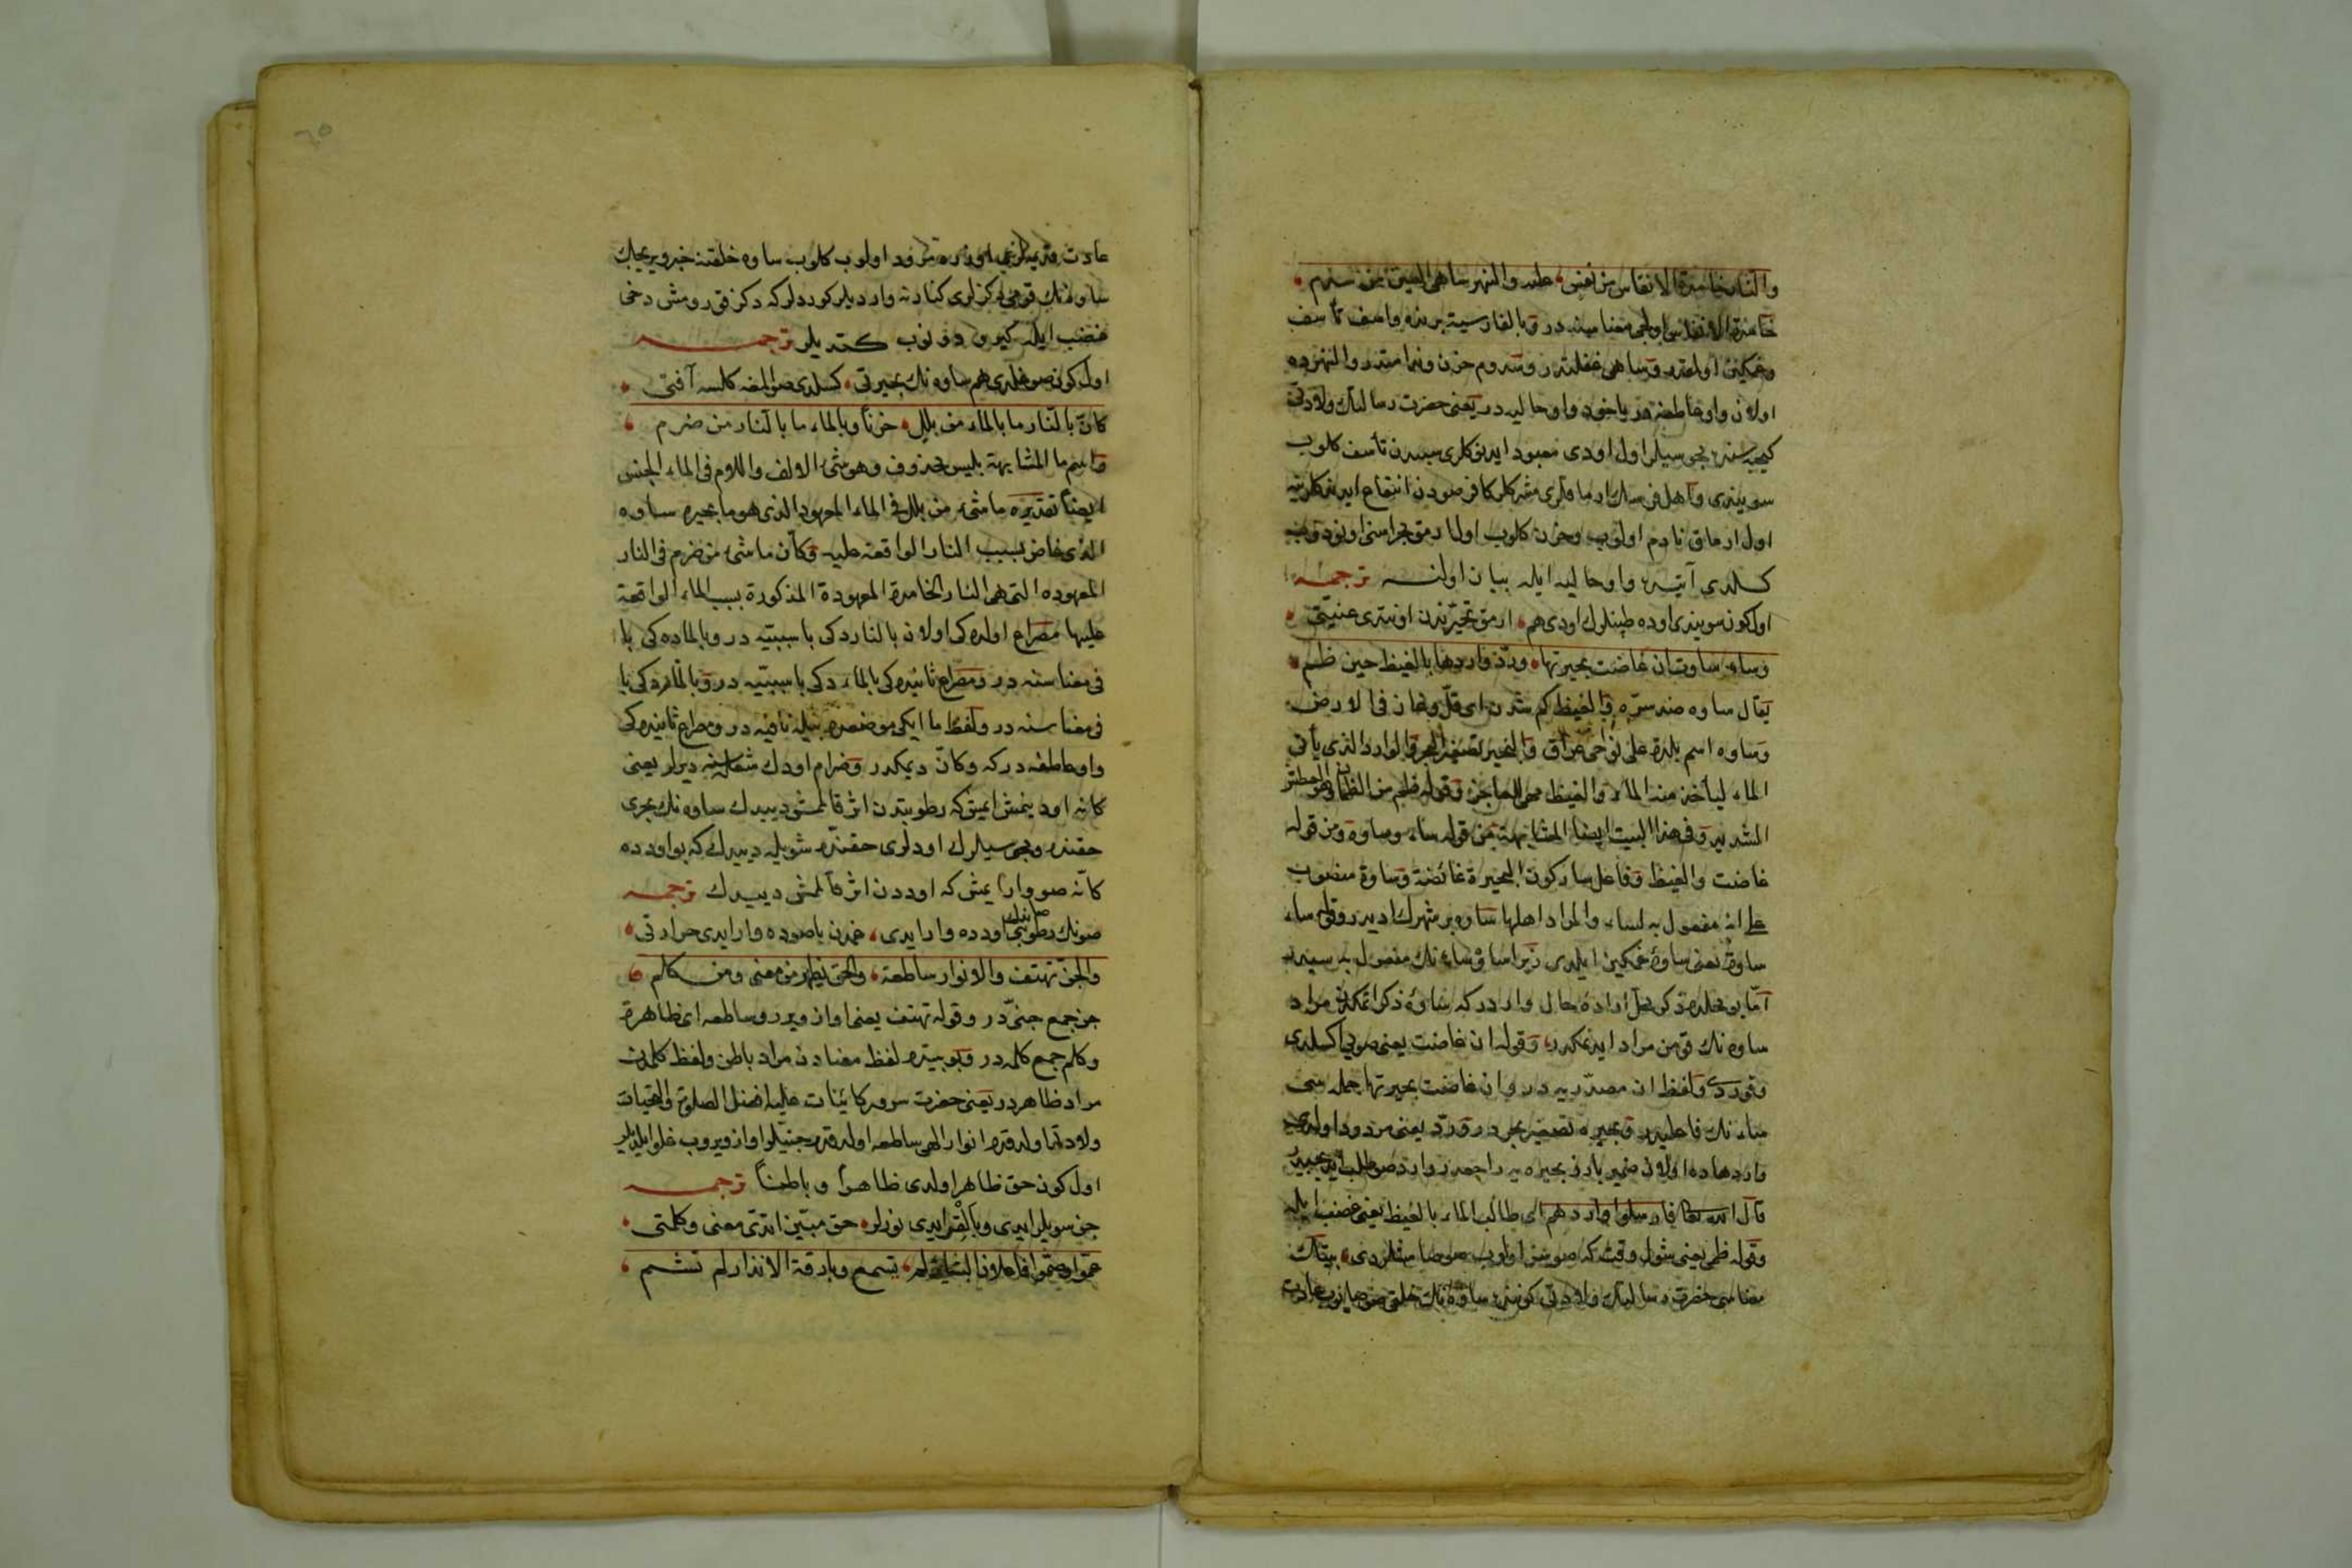 والنار خامدة الانفاس من اسف عليه والنهر ساهى العين من سدم
خامدة الانفاس معنا سنه در وبالفارسية واسف تأسف
وغمكين اولمقدر وساهى غفلتدر وسدم حزن وندامتدر والنهرده
اولان واو عاطفه در ياخود واو حاليه در يعنى حضرت رسالتك ولادتى
كيجه سنده مجوسيلر اول اودى معبود ايدنكلرى سببدن تأسف كلوب
سويندى
اول ارماق نادم اولوب وحزن كلوب اولار
كلدى واو حاليه ايله بيان اولنه ترجمه
اول كون سويندى اوده طپنلرك اودى هم ارمق تحيرندن اونتدى عنيتى
وساء ساوة ان غاضت بحيرتها ورد واردها بالغيظ حين ظمى
يقال ساءه ضد سره والغيظ كم شدن اى قل ونقان فى الارض
وساوه اسم بلدة على نواحى عراق والبحيرة تصغير البحر والوارد الذى يأتى
الماء ليأخذ منه الماء والغيظ وقوله ظمى من الظمأ وهو العطش
الشديد وفى هذا البيت ايضا المشابهة من قوله ساء وساوه ومن قوله
غاضت والغيظ وفاعل ساء كون البحيرة غائضة وساوة منصوب
على انه مفعول به لساء والمراد اهلها ساوه بر شهرك اديدر وقوله ساء
ساوة يعنى ساوه غمكين ايلدى زيرا ساوه ساءنك مفعول به سيدر
اما بو محلده ذكر محل اراده حال واردر كه ساوه ذكر اتمكدن مراد
ساوه نك قومن مراد ايتمكدر وقوله ان غاضت يعنى صويى اكسلدى
وقورد ولفظ ان مصدريه در وان غاضت بحيرتها جمله سى
ساءنك فاعليدر وبحيره تصغير بحردر ورد يعنى مردود اولدى
واردهاده اولان ضمير بارز بحيره يه راجعدر وارد صو طلب ايديجيدر
قال الله تعالى فارسلوا واردهم اى طالب الماء بالغيظ يعنى غضب ايله
وقوله ظمى يعنى شول وقت كه صوسز اولوب بيتك
معناسى حضرت رسالتك ولادتى كوننده ساوه نك خلقى عادت
عادت اوزره اولوب كلوب ساوه خلقنه خبر ويريجيك
ساوه نك قومى دكزلرى كنارنه وارديلر كورديلر كه دكز قورومش دخى
غضب ايله كيرو دونوب كتديلر ترجمه
اول كون صوغلدى هم ساوه نك بحيرتى كسلدى آفتى
كان بالنار ما بالماء من بلل حزنا وبالماء ما بالنار من ضرم
واسم ما المشابهة بليس محذوف وهو شئ الالف واللام فى الماء الجنس
ايضا تقديره ما شئ من بلل فى الماء المعهود الذى هو ماء بحيرة ساوه
الذى غاض بسبب النار الواقعة عليه وكان ما شئ من ضرم فى النار
المعهوده التى هى النار الخامدة المعهودة المذكورة بسبب الماء الواقعة
عليها مصراع اولده كى اولان بالنارده كى با سببيه در وبالماده كى با
فى معناسنه در ومصراع ثانيده كى بالماءده كى با سببيه در وبالنارده كى با
فى معناسنه در ولفظ ما ايكى موضعده بيله نافيه در ومصراع ثانيده كى
واو عاطفه در كه وكان ديمكدر وضرام اودك شعله سنه ديرلر يعنى
كانه اود ينمش ايمش كه رطوبتدن اثر قالمش ديييدك ساوه نك بحرى
حقنده ومجوسيلرك اودلرى حقنده شويله ديييدك كه بو اودده
كانه صو وار ايمش كه اوددن اثر قالمش ديييدك ترجمه
صونك رطوبتى اودده وار ايدى غمدن يا صوده وار ايدى حرارتى
والجن تهتف والانوار ساطعة والحق يظهر من معنى ومن كلم
جن جمع جنى در وقوله تهتف يعنى اواز ويرر وساطعه اى ظاهرة
وكلم جمع كلمه در وبو بيتده لفظ معنادن مراد باطن ولفظ كلمدن
مراد ظاهردر يعنى حضرت سرور كائنات عليه افضل الصلوة والتحيات
ولادت اولدقده انوار الهى ساطعه اولدقده جنيلر اواز ويروب غلو ايلديلر
اول كون حق ظاهر اولدى ظاهرا وباطنا ترجمه
جن سويلر ايدى وبالقر ايدى نورلر حق مبين اتدى معنى وكلمتى
عموا وصموا فاعلان البشاير لم يسمع وبارقة الانذار لم تشم